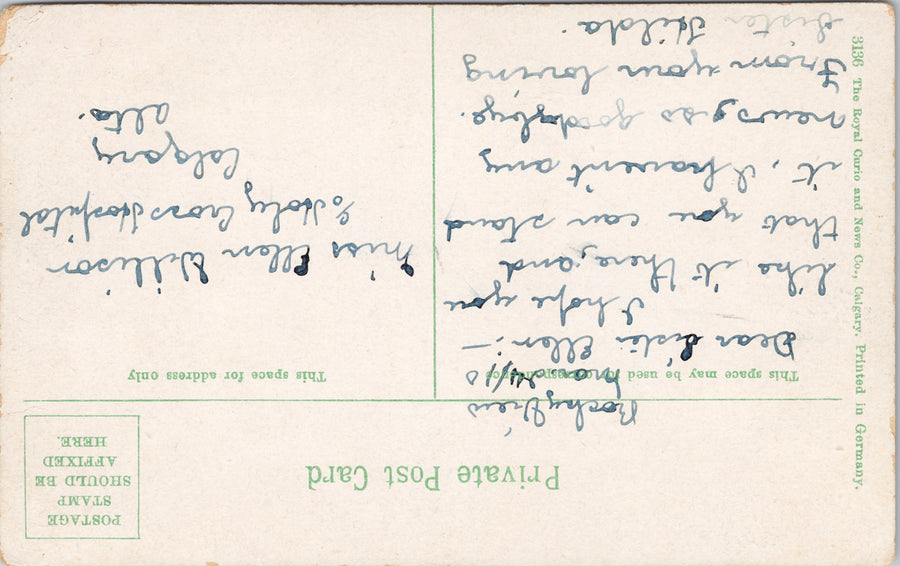 Private Post Card
POSTAGE
STAMP
SHOULD BE
AFFIXED
HERE.
This space may be used for correspondence
This space for address only
Rocky View
Mar. 24/10
Dear Sister Ellen:—
I hope you
like it there, and
that you can stand
it, I havent any
news, so goodbye.
From your loving
Sister
Hilda.
Miss Ellen Willison
c/o Holy Cross Hospital
Calgary
Alta.
3136 The Royal Curio and News Co., Calgary. Printed in Germany.